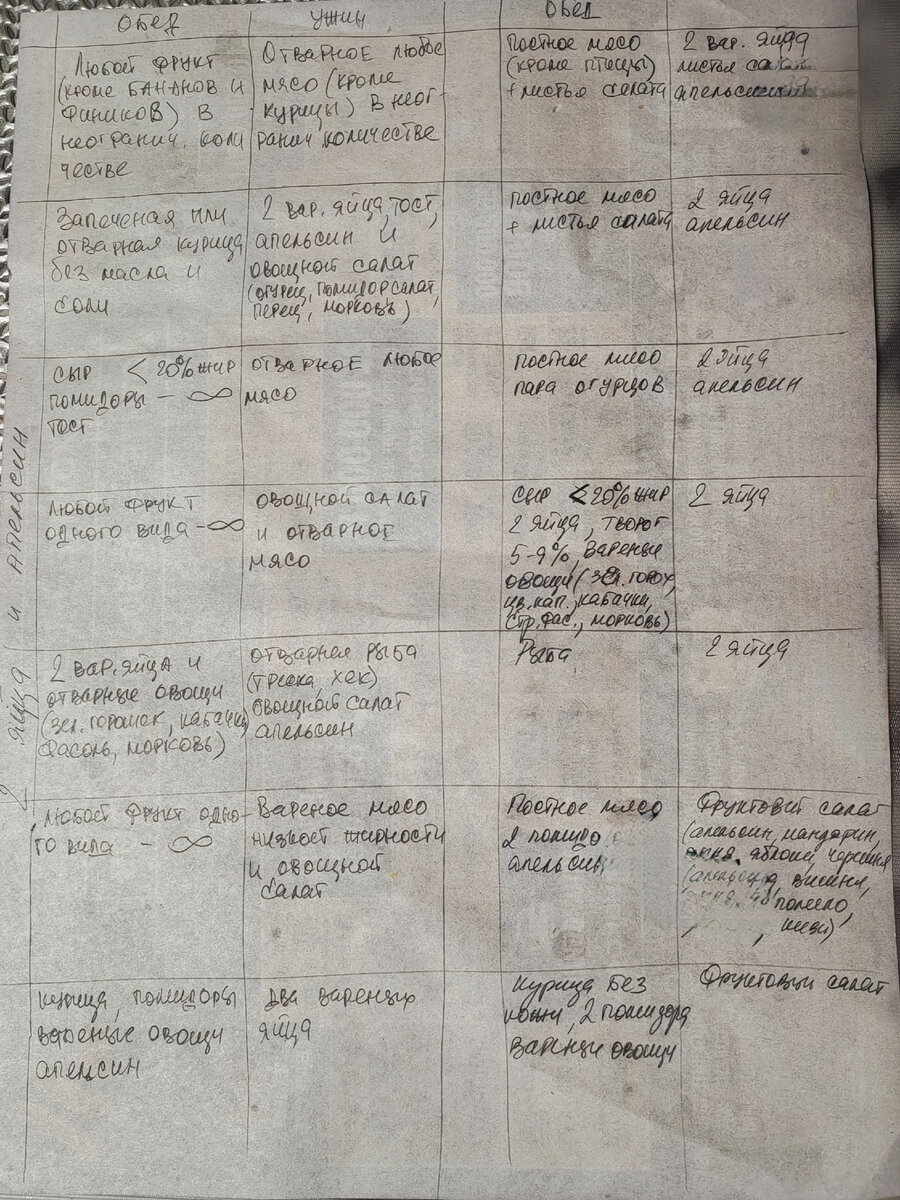 Обед
Ужин
Обед
2 яйца и апельсин
Любой фрукт
(кроме бананов и
фиников) в
неогранич. коли
честве
Отварное любое
мясо (кроме
курицы) в неог-
ранич количестве
Постное мясо
(кроме птицы)
+ листья салата
2 вар. яйца
листья салата
апельсин
Запеченая или
отварная курица
без масла и
соли
2 вар. яйца, тост,
апельсин и
овощной салат
(огурец, помидор салат,
перец, морковь)
постное мясо
+ листья салата
2 яйца
апельсин
сыр < 20% жир
помидоры — ∞
тост
отварное любое
мясо
постное мясо
пара огурцов
2 яйца
апельсин
любой фрукт
одного вида — ∞
овощной салат
и отварное
мясо
Сыр < 20% жир
2 яйца, творог
5-9% вареные
овощи (зел. горох,
цв. кап., кабачки,
стр. фас., морковь)
2 яйца
2 вар. яйца и
отварные овощи
(зел. горошек, кабачки,
фасоль, морковь)
отварная рыба
(треска, хек)
овощной салат
апельсин
Рыба
2 яйца
любой фрукт одно-
го вида — ∞
Вареное мясо
низкой жирности
и овощной
салат
Постное мясо
2 помидо
апельсин
Фруктовый салат
(апельсин, мандарин,
яблоки, черешня
вишня,
помело,
киви)
курица, помидоры
вареные овощи
апельсин
два вареных
яйца
курица без
кожи, 2 помидора
вареные овощи
Фруктовый салат